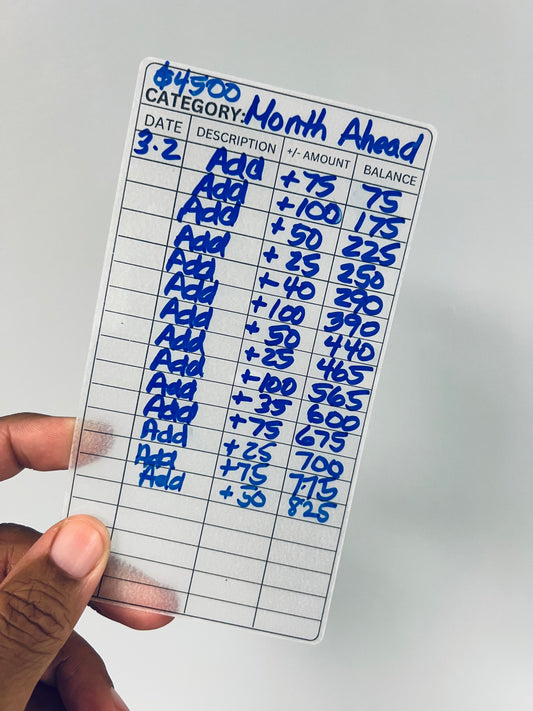 $4500
CATEGORY: Month Ahead
DATE DESCRIPTION +/- AMOUNT BALANCE
3.2 Add +75 75
Add +100 175
Add +50 225
Add +25 250
Add +40 290
Add +100 390
Add +50 440
Add +25 465
Add +100 565
Add +35 600
Add +75 675
Add +25 700
Add +75 775
Add +50 825